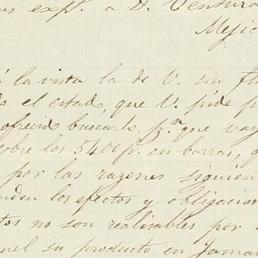 expt. a D. Ventura
Mejic
la vista la de V. sin
el estado, que V. pide p
ofreció buscarlo, pª que vay
sobre los 5400 p. en barras,
por las razones siguien
nden los efectos y obligacion
tos no son realisables por
el su producto en Jama